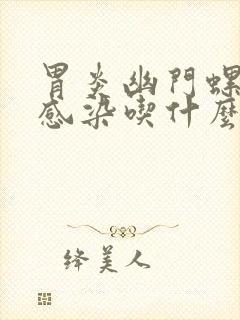 胃炎幽門螺
感染喫什麼
絳美人